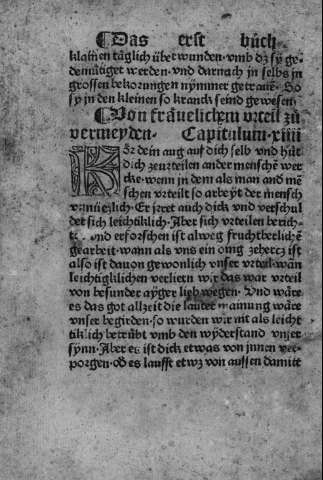 Das erst bůch
klainen täglich über wunden. vmb dz sy ge-
demütiget werden. vnd darnach jn selbs in
grossen bekorungen nÿmmer getrauē. So
sy in den kleinen so kranck seind gewesen.
Von fräuelichem vrteil zů
vermeyden. Capitulum. xiiii
KEr dein aug auf dich selb vnd hüt
dich zeurteilen ander menschē wer
cke. wenn in dem als man and mē
schen vrteilt so arbeÿt der mensch
vnnüczlich. Er jrret auch dick vnd verschul
det sich leichtiklich. Aber sich vrteilen
vnd erforschen ist alweg fruchtberlichē
gearbeit. wann als vns ein ding ze hercz ist
also ist dauon gewonlich vnser vrteil. wān
leichtigklichen verliern wir das war vrteil
von besunder aÿger lieb wegen. Vnd wäre
es das got allzeit die lauter mainung wäre
vnser begirden. so wurden wir nit als leicht
tiklich betrübt vmb den wÿderstand vnser
synn. Aber es ist dick etwas von jnnen ver-
porgen. od es laufft etwz von aussen damitt